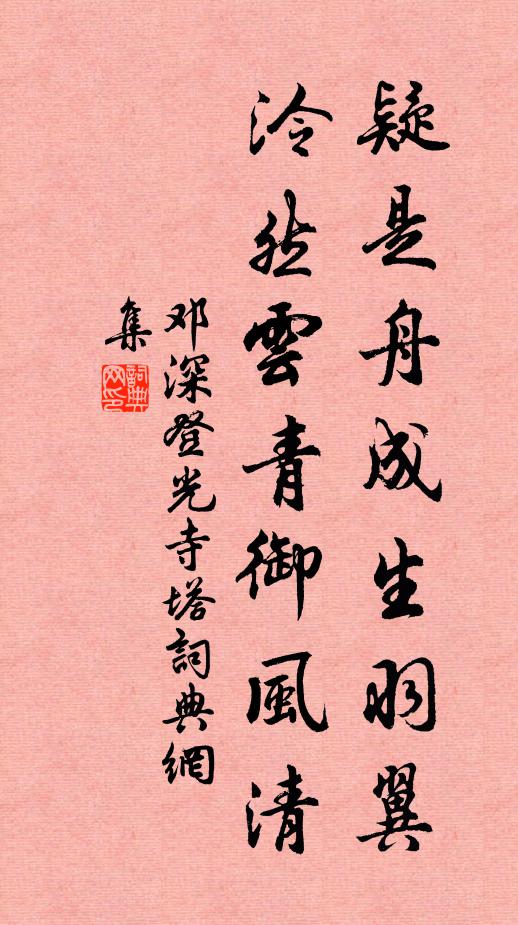 疑是舟成生羽翼
泠然雲青御風清
邓深登光寺塔詞典網
集
詞典网印